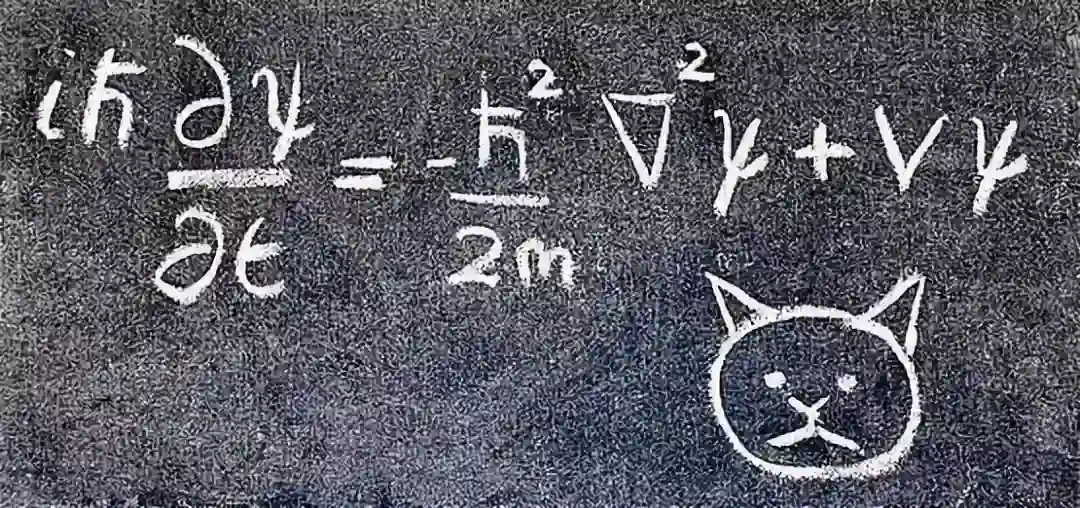 iħ ∂ψ/∂t = -ħ²/2m ∇²ψ + Vψ